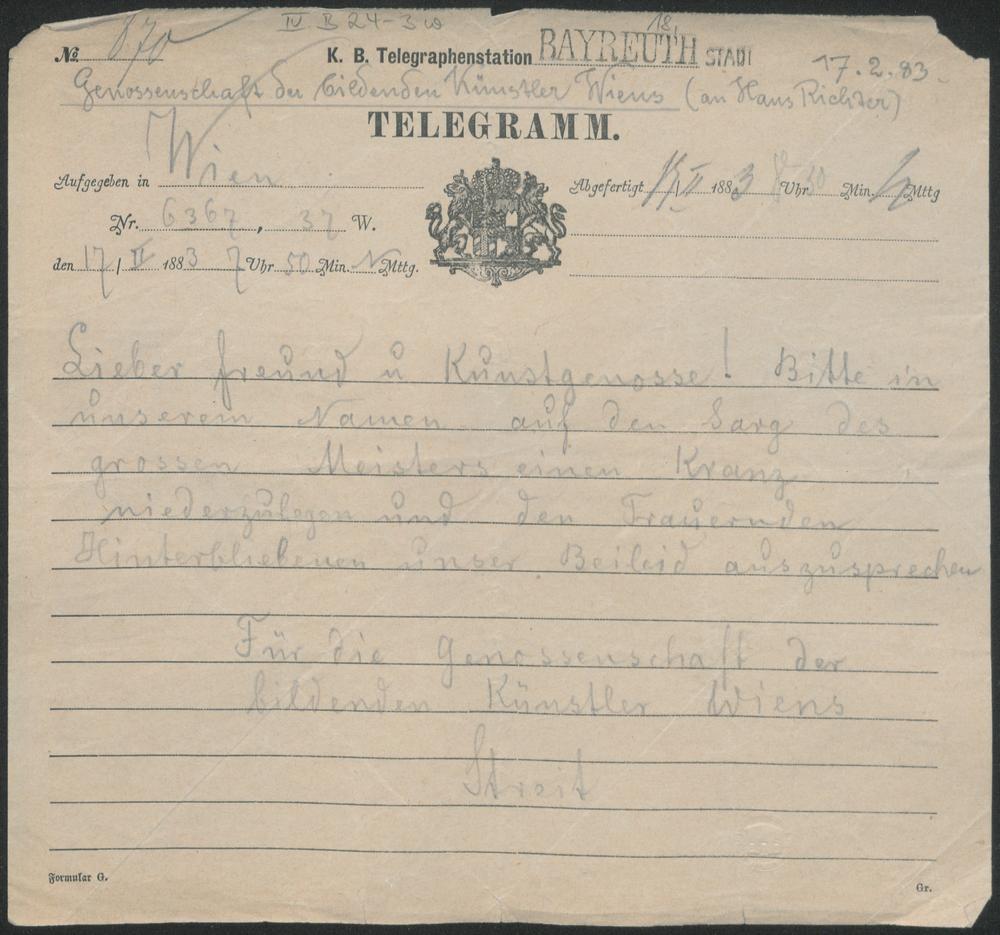 IV B 24-3 w
№ 870 K. B. Telegraphenstation BAYREUTH STADT 18. 17.2.83.
Genossenschaft der bildenden Künstler Wiens (an Hans Richter)
TELEGRAMM.
Aufgegeben in Wien
Abgefertigt 17/II 1883 8 Uhr 30 Min. Mttg
Nr. 6367, 37 W.
den 17/II 1883 7 Uhr 50 Min. N Mttg.
Lieber Freund u Kunstgenosse! Bitte in
unserem Namen auf den Sarg des
grossen Meisters einen Kranz
niederzulegen und den Trauernden
Hinterbliebenen unser Beileid auszusprechen
Für die Genossenschaft der
bildenden Künstler Wiens
Streit
Formular G.
Gr.